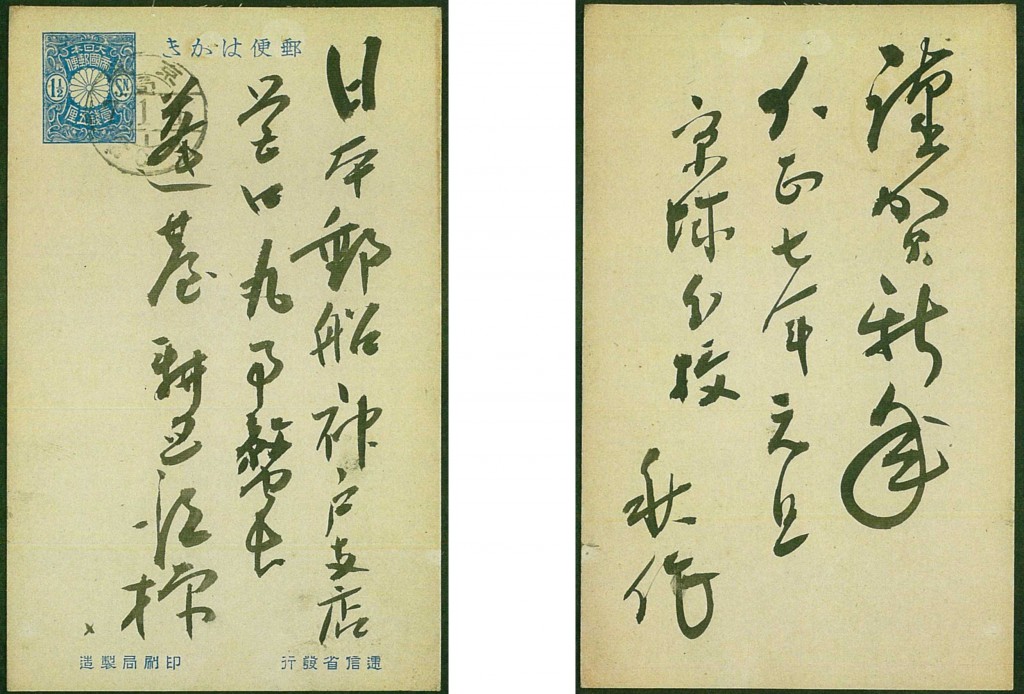 郵便はがき
大日本
帝國郵便
1½ Sn.
壹錢五厘
日本郵船神戸支店
営口丸事務長
様
遞信省發行
印刷局製造
謹賀新年
大正七年元旦
京城
秋作